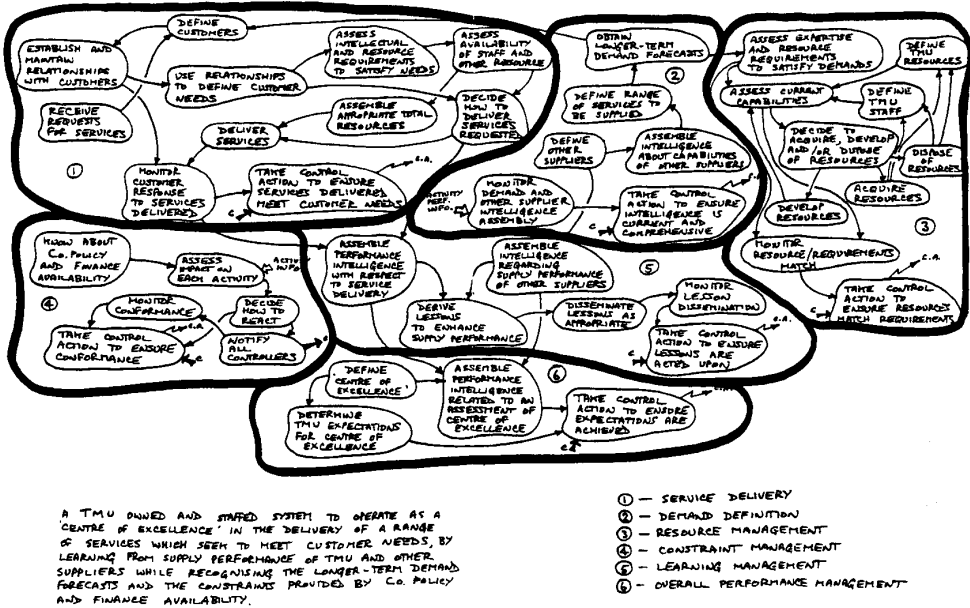 DEFINE
CUSTOMERS
ESTABLISH AND
MAINTAIN
RELATIONSHIPS
WITH CUSTOMERS
RECEIVE
REQUESTS
FOR SERVICES
USE RELATIONSHIPS
TO DEFINE CUSTOMER
NEEDS
ASSESS
INTELLECTUAL
AND RESOURCE
REQUIREMENTS
TO SATISFY NEEDS
ASSESS
AVAILABILITY
OF STAFF AND
OTHER RESOURCE
ASSEMBLE
APPROPRIATE TOTAL
RESOURCES
DECIDE
HOW TO
DELIVER
SERVICES
REQUESTED
DELIVER
SERVICES
MONITOR
CUSTOMER
RESPONSE
TO SERVICES
DELIVERED
TAKE CONTROL
ACTION TO ENSURE
SERVICES DELIVERED
MEET CUSTOMER NEEDS
C
C.A.
①
OBTAIN
LONGER-TERM
DEMAND FORECASTS
②
DEFINE RANGE
OF SERVICES TO
BE SUPPLIED
DEFINE
OTHER
SUPPLIERS
ASSEMBLE
INTELLIGENCE
ABOUT CAPABILITIES
OF OTHER SUPPLIERS
ACTIVITY
PERF.
INFO.
MONITOR
DEMAND AND
OTHER SUPPLIER
INTELLIGENCE
ASSEMBLY
TAKE CONTROL
ACTION TO ENSURE
INTELLIGENCE IS
CURRENT AND
COMPREHENSIVE
C
C.A.
ASSESS EXPERTISE
AND RESOURCE
REQUIREMENTS
TO SATISFY DEMANDS
DEFINE
TMU
RESOURCES
ASSESS CURRENT
CAPABILITIES
DEFINE
TMU
STAFF
DECIDE TO
ACQUIRE, DEVELOP
AND/OR DISPOSE
OF RESOURCES
DISPOSE
OF
RESOURCES
ACQUIRE
RESOURCES
DEVELOP
RESOURCES
③
MONITOR
RESOURCE/REQUIREMENTS
MATCH
C.A.
TAKE CONTROL
ACTION TO
ENSURE RESOURCES
MATCH REQUIREMENTS
C
KNOW ABOUT
CO. POLICY
AND FINANCE
AVAILABILITY
ASSESS
IMPACT ON
EACH ACTIVITY
ACTIVITY
INFO
④
MONITOR
CONFORMANCE
DECIDE
HOW TO
REACT
TAKE CONTROL
ACTION TO ENSURE
CONFORMANCE
C.A.
C
NOTIFY
ALL
CONTROLLERS
C
ASSEMBLE
PERFORMANCE
INTELLIGENCE
WITH RESPECT
TO SERVICE
DELIVERY
ASSEMBLE
INTELLIGENCE
REGARDING
SUPPLY PERFORMANCE
OF OTHER SUPPLIERS
⑤
DERIVE
LESSONS
TO ENHANCE
SUPPLY PERFORMANCE
DISSEMINATE
LESSONS AS
APPROPRIATE
MONITOR
LESSON
DISSEMINATION
C.A.
TAKE CONTROL
ACTION TO ENSURE
LESSONS ARE
ACTED UPON
C
DEFINE
'CENTRE OF
EXCELLENCE'
ASSEMBLE
PERFORMANCE
INTELLIGENCE
RELATED TO AN
ASSESSMENT OF
CENTRE OF
EXCELLENCE
⑥
DETERMINE
TMU EXPECTATIONS
FOR CENTRE OF
EXCELLENCE
TAKE CONTROL
ACTION TO ENSURE
EXPECTATIONS ARE
ACHIEVED
C
A TMU OWNED AND STAFFED SYSTEM TO OPERATE AS A
'CENTRE OF EXCELLENCE' IN THE DELIVERY OF A RANGE
OF SERVICES WHICH SEEK TO MEET CUSTOMER NEEDS, BY
LEARNING FROM SUPPLY PERFORMANCE OF TMU AND OTHER
SUPPLIERS WHILE RECOGNISING THE LONGER-TERM DEMAND
FORECASTS AND THE CONSTRAINTS PROVIDED BY CO. POLICY
AND FINANCE AVAILABILITY.
① – SERVICE DELIVERY
② – DEMAND DEFINITION
③ – RESOURCE MANAGEMENT
④ – CONSTRAINT MANAGEMENT
⑤ – LEARNING MANAGEMENT
⑥ – OVERALL PERFORMANCE MANAGEMENT